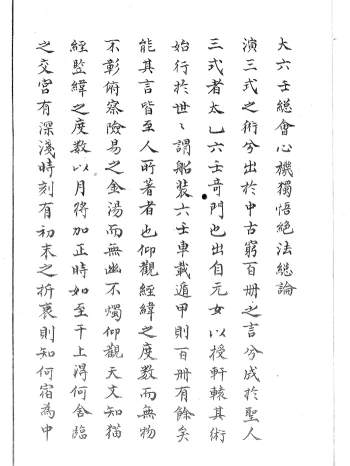 大六壬總會心機獨悟絕法總論
演三式之術分出於中古窮百冊之言分成於聖人
三式者太乙六壬奇門也出自元女以授軒轅其術
始行於世〻謂船裝六壬車載遁甲則百冊有餘矣
能其言皆至人所著者也仰觀經緯之度數而無物
不彰俯察險易之金湯而無幽不燭仰觀天文知猫
經監緯之度數以月將加正時如至干上得何舍臨
之交宮有深淺時刻有初末之折衷則知何宿為中